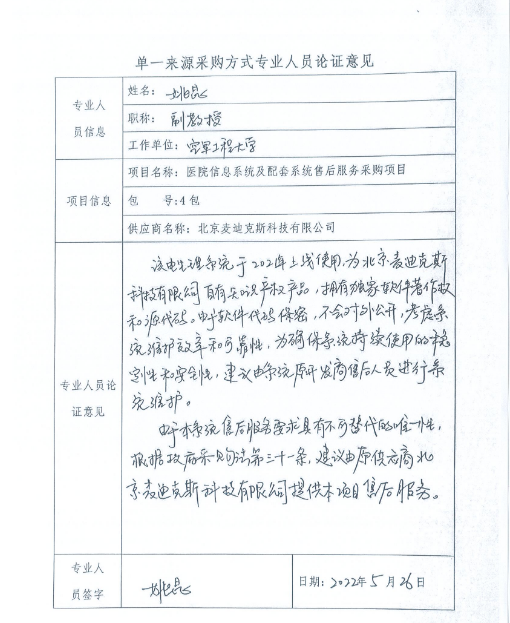 单一来源采购方式专业人员论证意见
专业人员信息
姓名：姚昆
职称：副教授
工作单位：空军工程大学
项目信息
项目名称：医院信息系统及配套系统售后服务采购项目
包 号：4包
供应商名称：北京麦迪克斯科技有限公司
专业人员论证意见
该电生理系统于202年上线使用，为北京麦迪克斯
科技有限公司自有知识产权产品，拥有独家软件著作权
和源代码。由于软件代码保密，不会对外公开，考虑系
统维护效率和可靠性，为确保系统持续使用的稳
定性和安全性，建议由系统原开发商售后人员进行系
统维护。
由于本系统售后服务要求具有不可替代的唯一性，
根据政府采购法第三十一条，建议由原供应商北
京麦迪克斯科技有限公司提供本项目售后服务。
专业人员签字
姚昆
日期：2022年5月26日